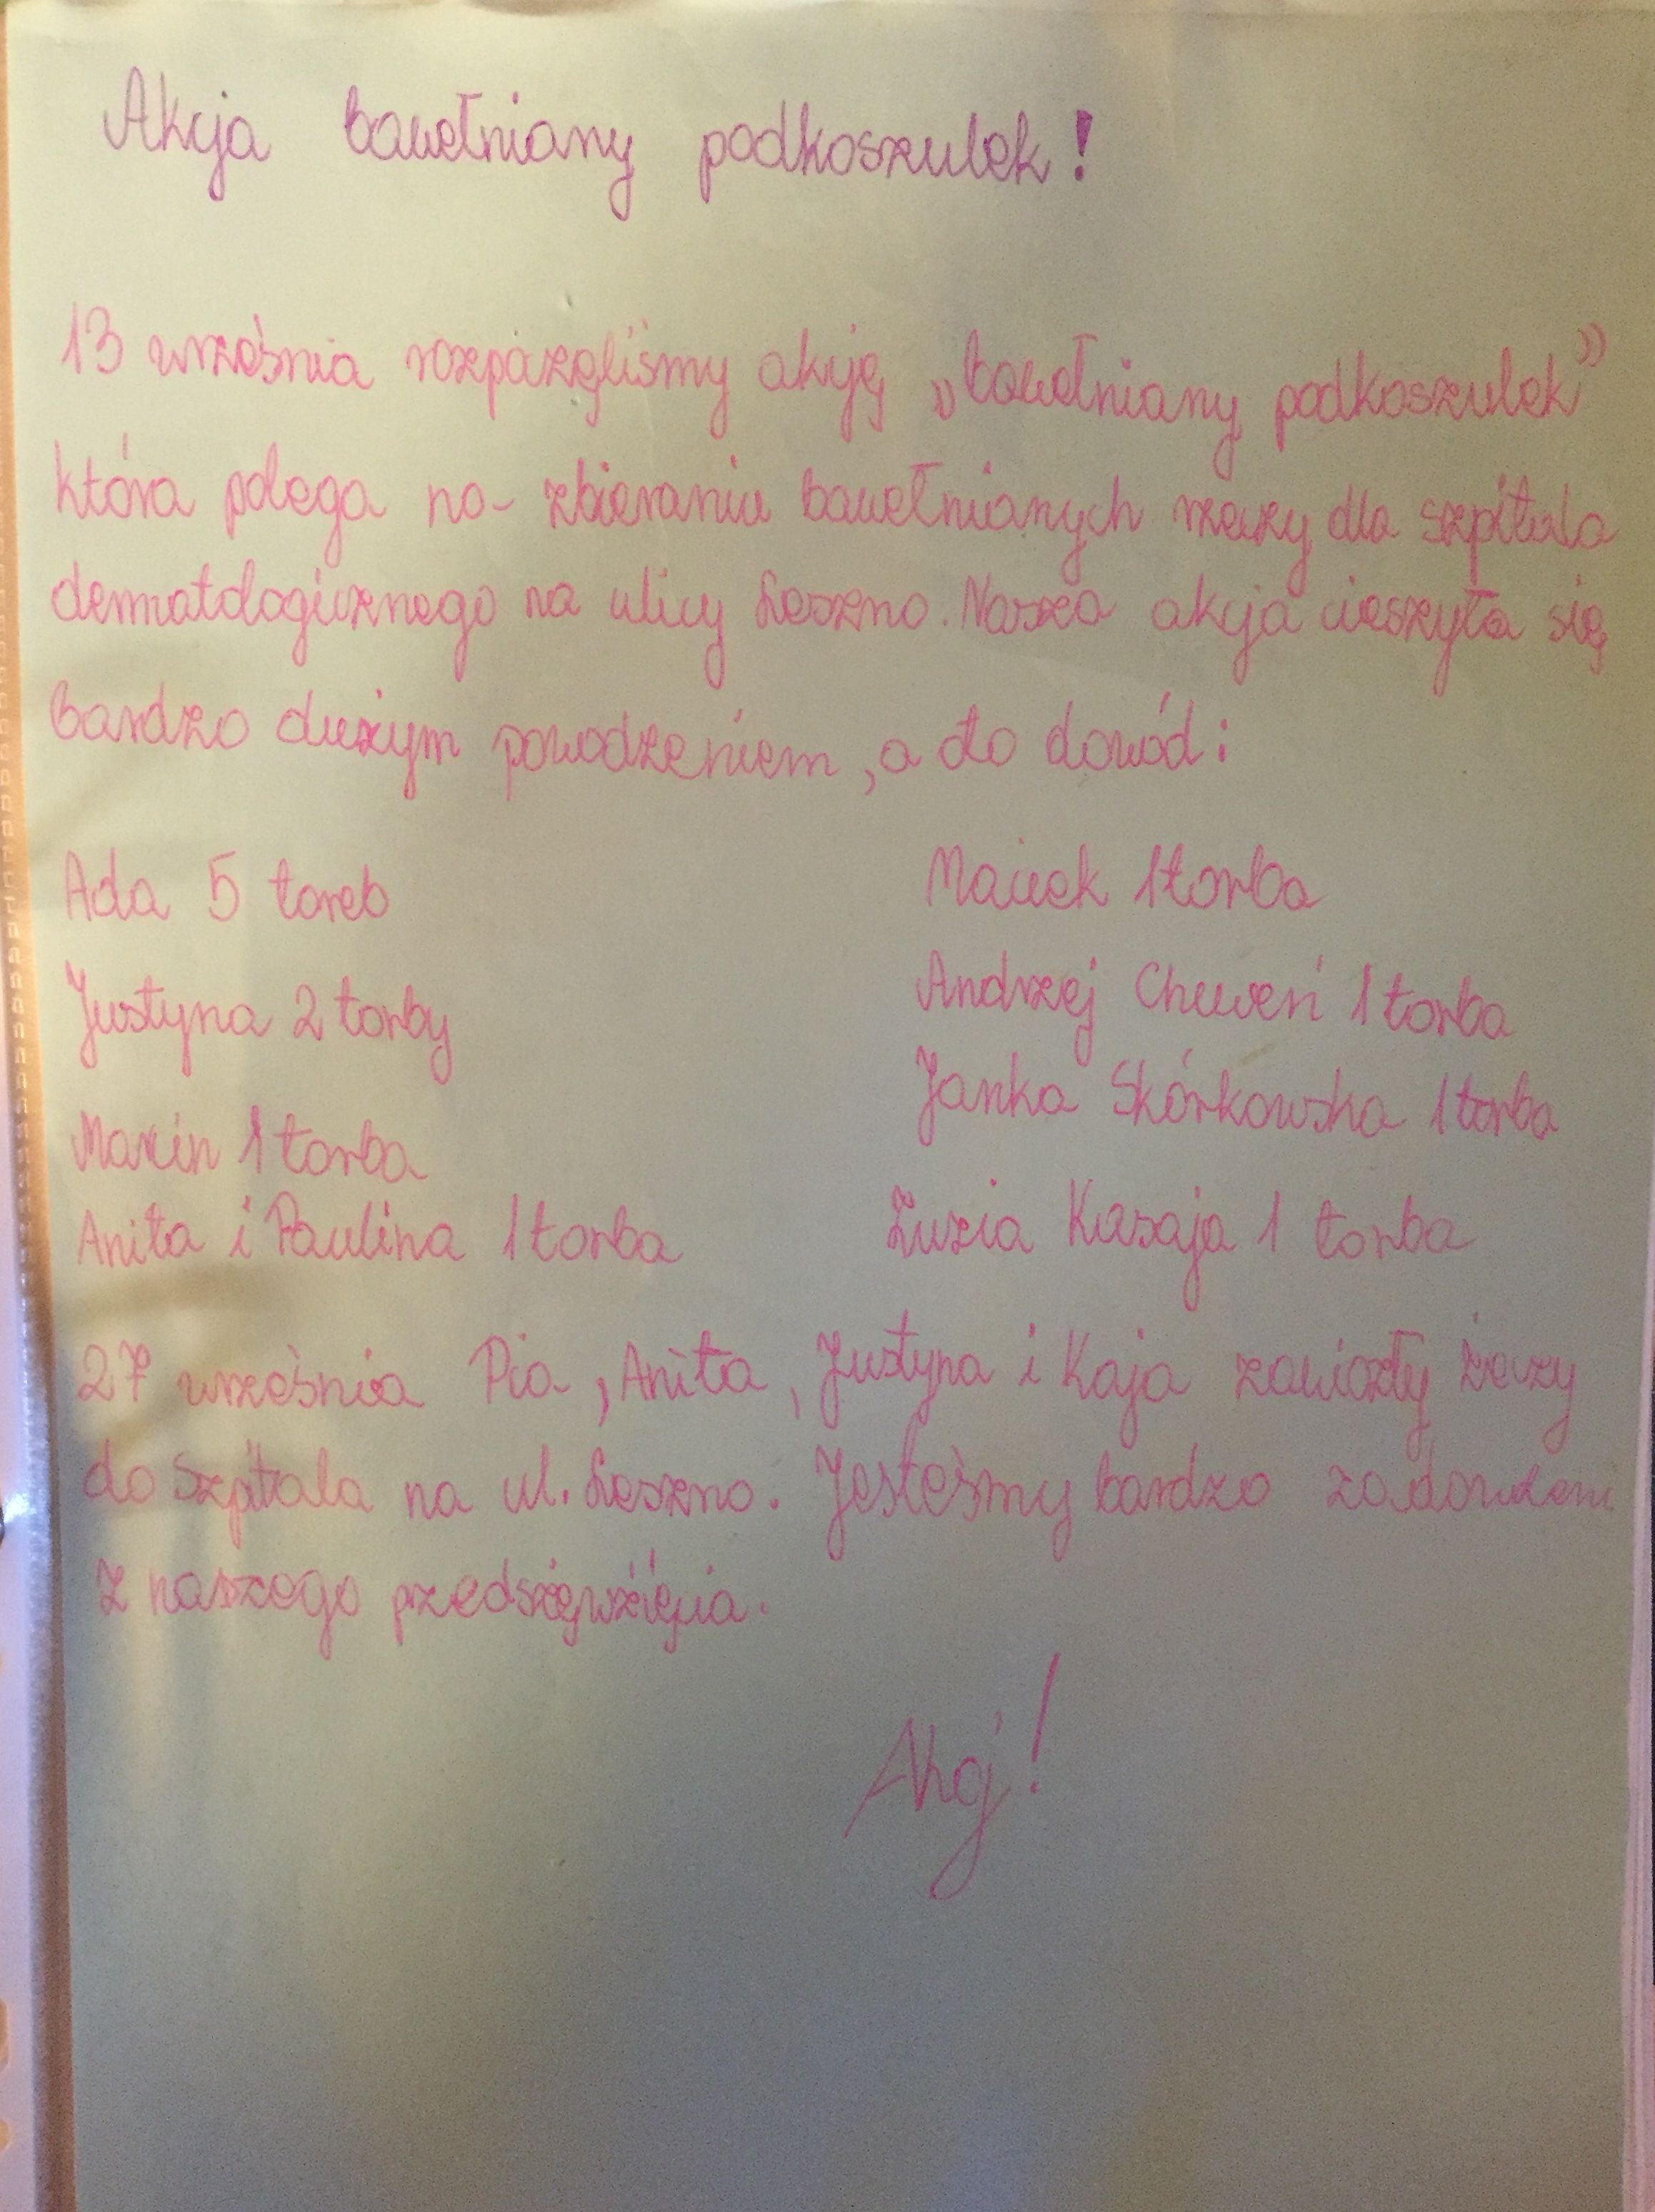 Akcja bawełniany podkoszulek!
13 września rozpaczęliśmy akcję „bawełniany podkoszulek”
która polega na zbieraniu bawełnianych rzeczy dla szpitala
dermatologicznego na ulicy Leszno. Nasza akcja cieszyła się
bardzo dużym powodzeniem, a oto dowód:
Ada 5 toreb
Justyna 2 torby
Marcin 1 torba
Anita i Paulina 1 torba
Maciek 1 torba
Andrzej 1 torba
Janka Skórkowska 1 torba
Zuzia 1 torba
27 września Pia, Anita, Justyna i Kaja zawiozły żeczy
do szpitala na ul. Leszno. Jesteśmy bardzo zadowoleni
z naszego
Ahoj!